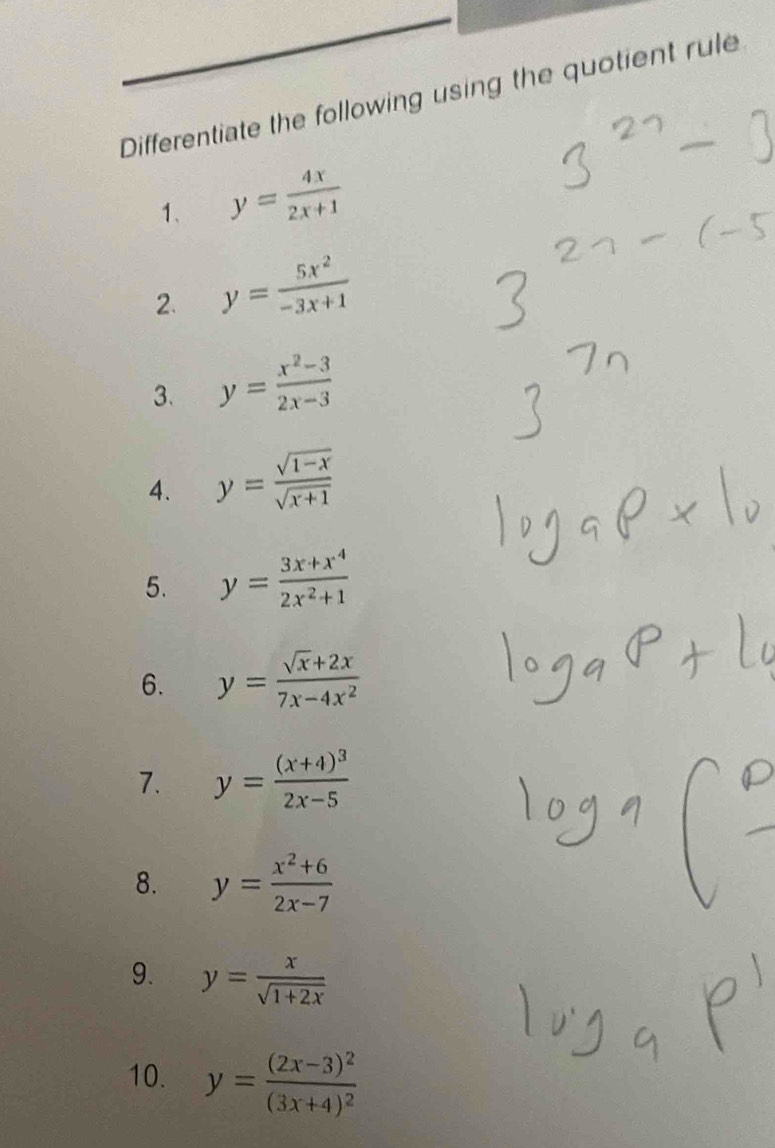 Differentiate the following using the quotient rule
3^{2n} - 3
1. y = \frac{4x}{2x+1}
3^{2n - (-5}
2. y = \frac{5x^2}{-3x+1}
3^{7n}
3. y = \frac{x^2-3}{2x-3}
4. y = \frac{\sqrt{1-x}}{\sqrt{x+1}}
log a P × lo
5. y = \frac{3x+x^4}{2x^2+1}
log a P + lo
6. y = \frac{\sqrt{x}+2x}{7x-4x^2}
7. y = \frac{(x+4)^3}{2x-5}
log a ( P
8. y = \frac{x^2+6}{2x-7}
9. y = \frac{x}{\sqrt{1+2x}}
log a P
10. y = \frac{(2x-3)^2}{(3x+4)^2}